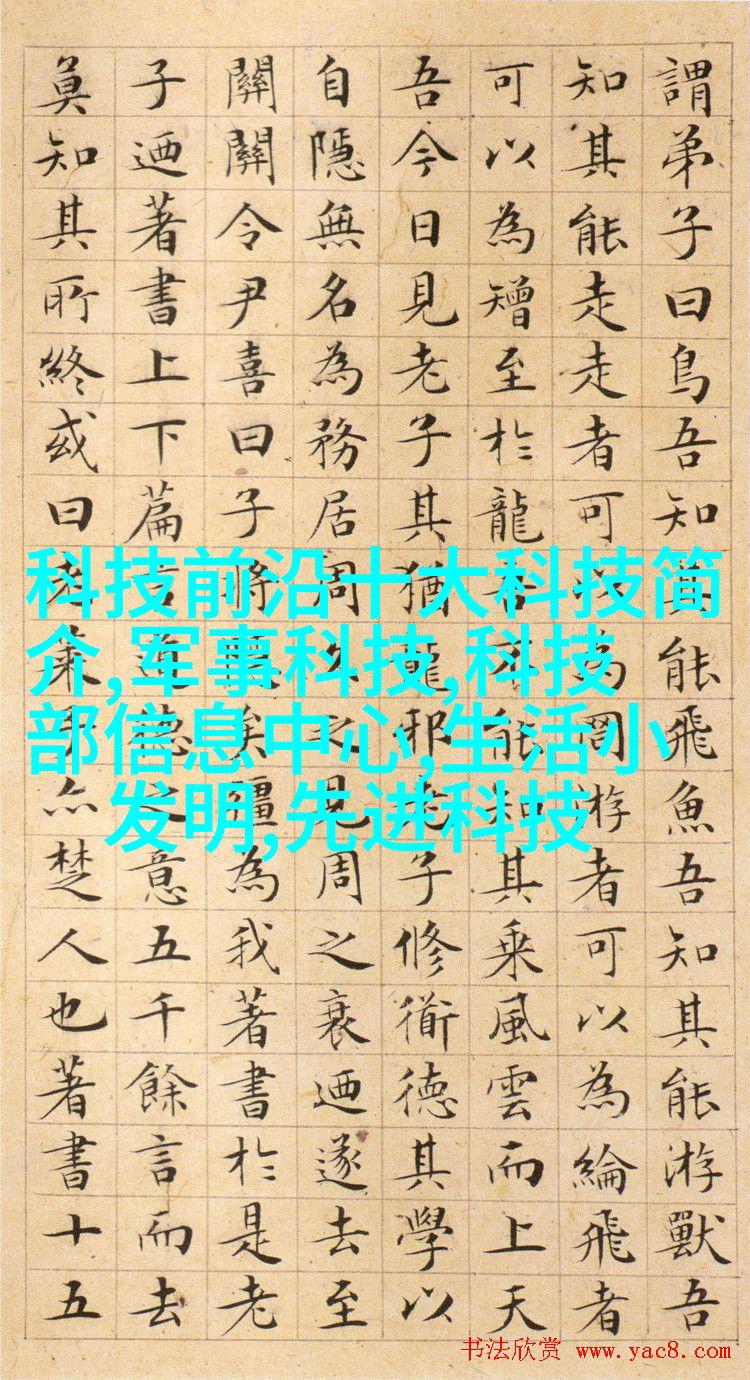 謂弟子曰鳥吾知其能飛魚吾知其能游獸吾
知其能走走者可以為罔游者可以為綸飛者
可以為矰至於龍吾不能知其乘風雲而上天
吾今日見老子其猶龍邪老子修衜德其學以
自隱無名為務居周久之見周之衰迺遂去至
關關令尹喜曰子將隱矣彊為我著書於是老
子迺著書上下篇言道德之意五千餘言而去
莫知其所終或曰老萊子亦楚人也著書十五
科技前沿十大科技简
介,军事科技,科技
部信息中心,生活小
发明,先进科技
书法欣赏 www.yac8.com